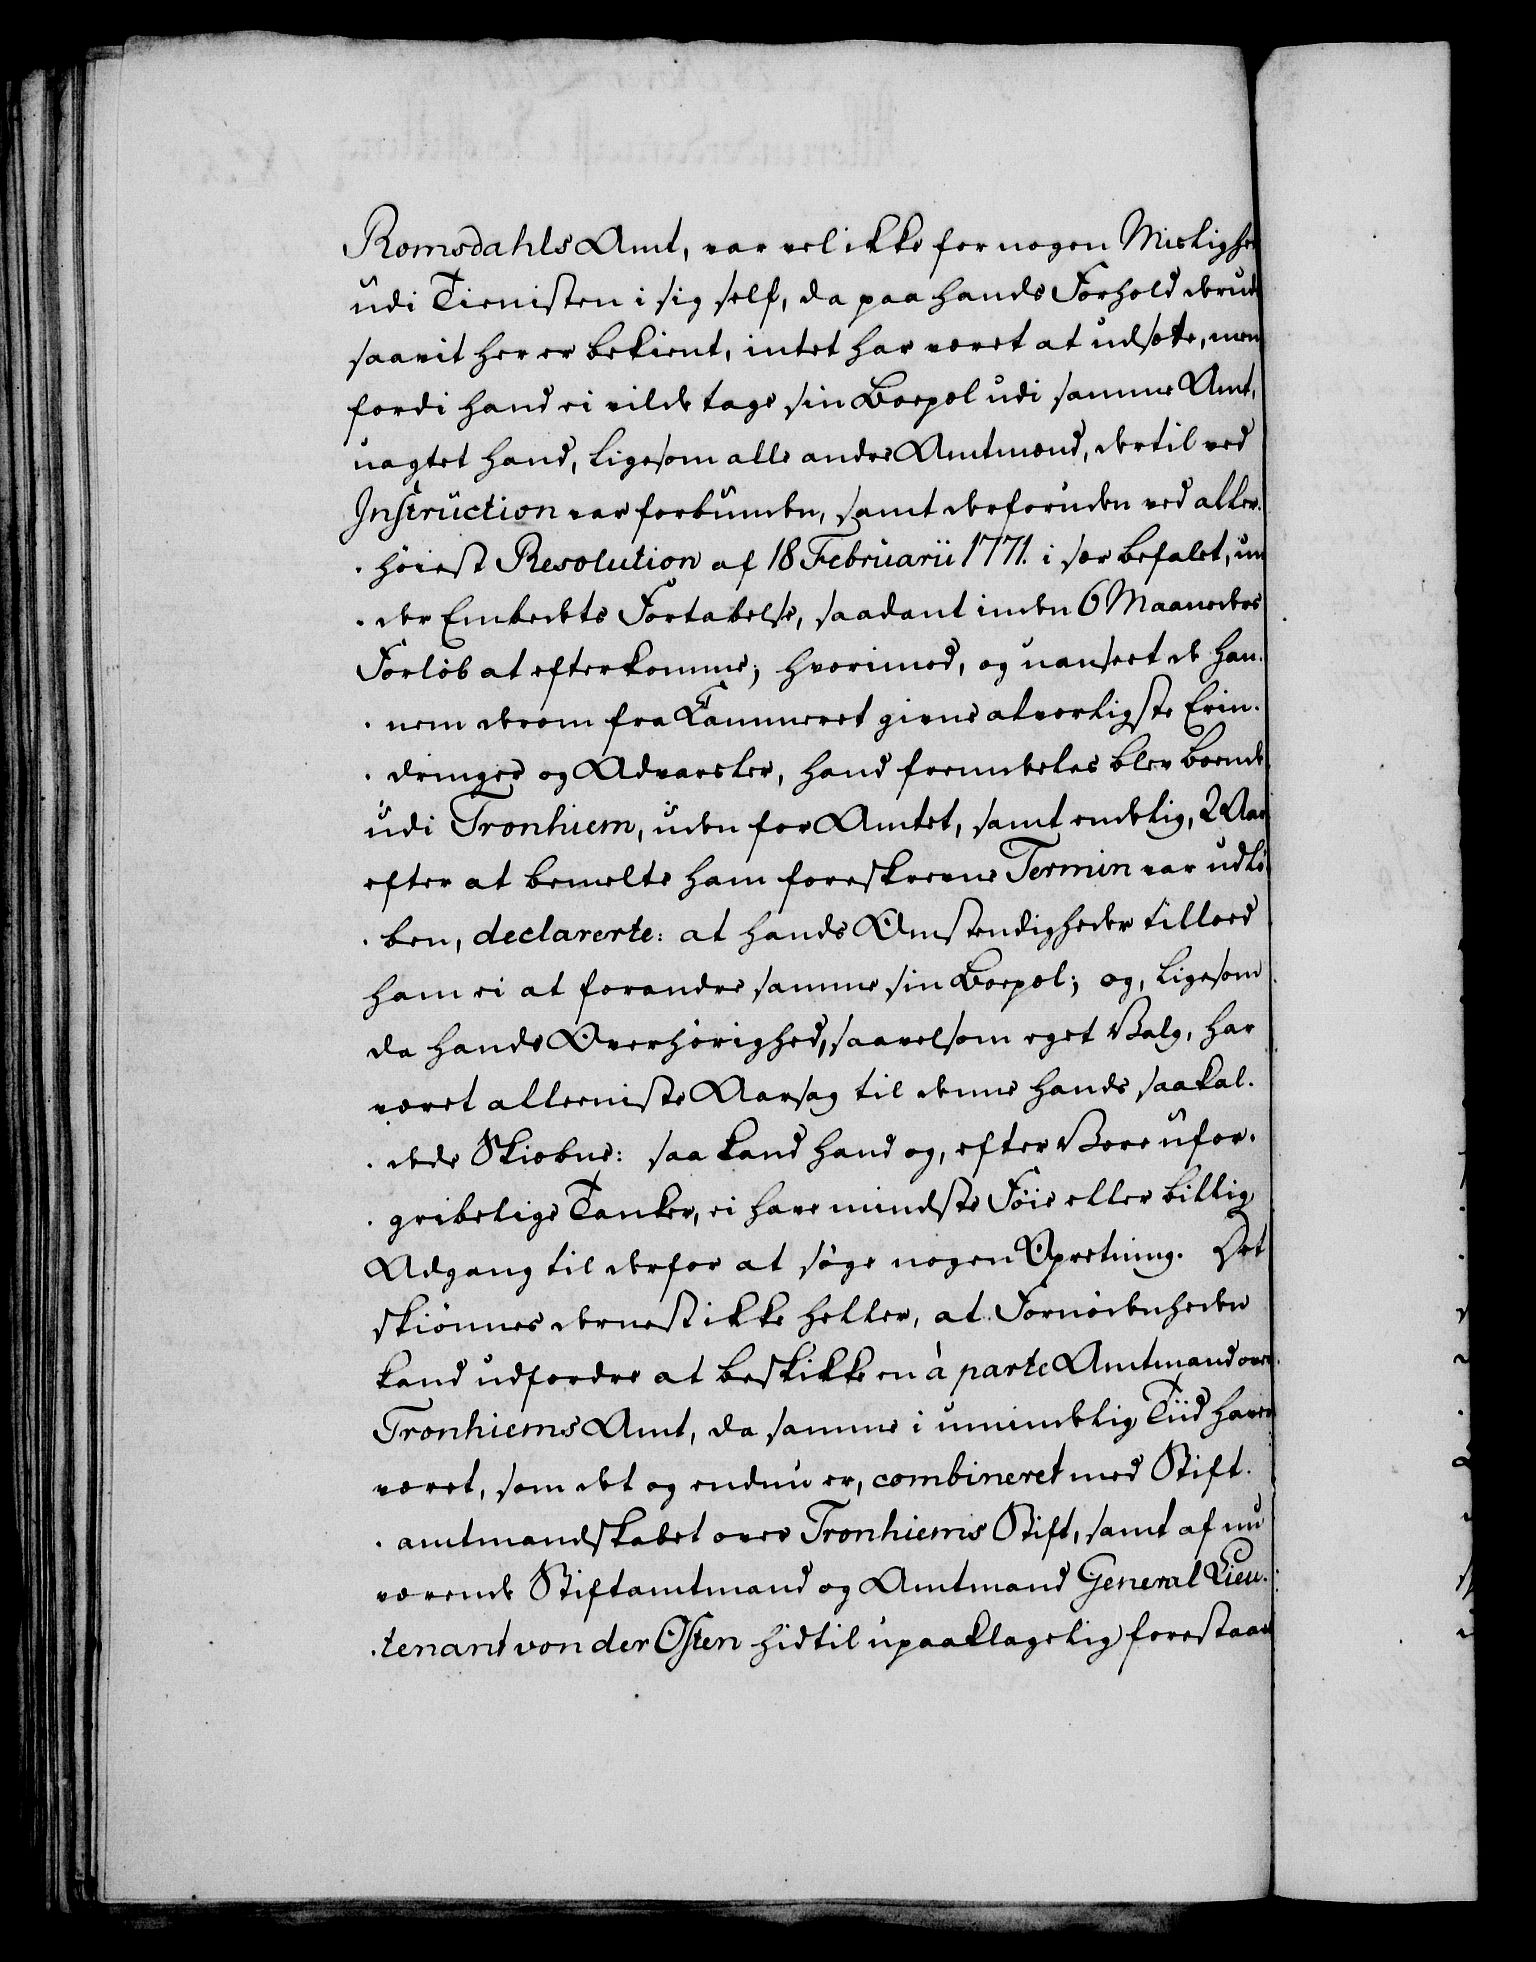 Romsdahls Amt, var vel ikke for nogen Misligh
udi Tienisten i sig self, da paa hands Forhold derud
saavit her er bekient, intet har været at udsætte, men
fordi hand ei vilde tage sin Boepæl udi samme Amt,
uagtet hand, ligesom alle andre Amtmænd, dertil ved
Instruction var forbunden, samt derforuden ved aller¬
høiest Resolution af 18 Februarii 1771. i sær befalet, un
der Embedets Fortabelse, saadant inden 6 Maaneders
Forløb at efterkomme; hvorimod, og uanseet de han¬
nem derom fra Cammeret givne alvorligste Erin¬
dringer og Advarsler, hand fremdeles blev boende
udi Tronhiem, uden for Amtet, samt endelig, 2 Aar
efter at bemelte ham foreskrevne Termin var udlø
ben, declarerte: at hands Omstendigheder tilloed
ham ei at forandre samme sin Boepæl; og, ligesom
da hands Overhørighed, saavelsom eget Valg, har
været alleeniste Aarsag til denne hands saakal¬
dede Skiæbne: saa kand hand og, efter Vore ufor¬
gribelige Tanker, ei have mindste Føie eller billig
Adgang til derfor at søge nogen Opretning. Det
skiønnes dernest ikke heller, at Fornødenheden
kand udfordre at beskikke en à parte Amtmand over
Tronhiems Amt, da samme i umindelig Tiid haver
været, som det og endnu er, combineret med Stift¬
amtmandskabet over Tronhiems Stift, samt af nu
værende Stiftamtmand og Amtmand General Lieu¬
tenant von der Osten hidtil upaaklagelig forestaaet